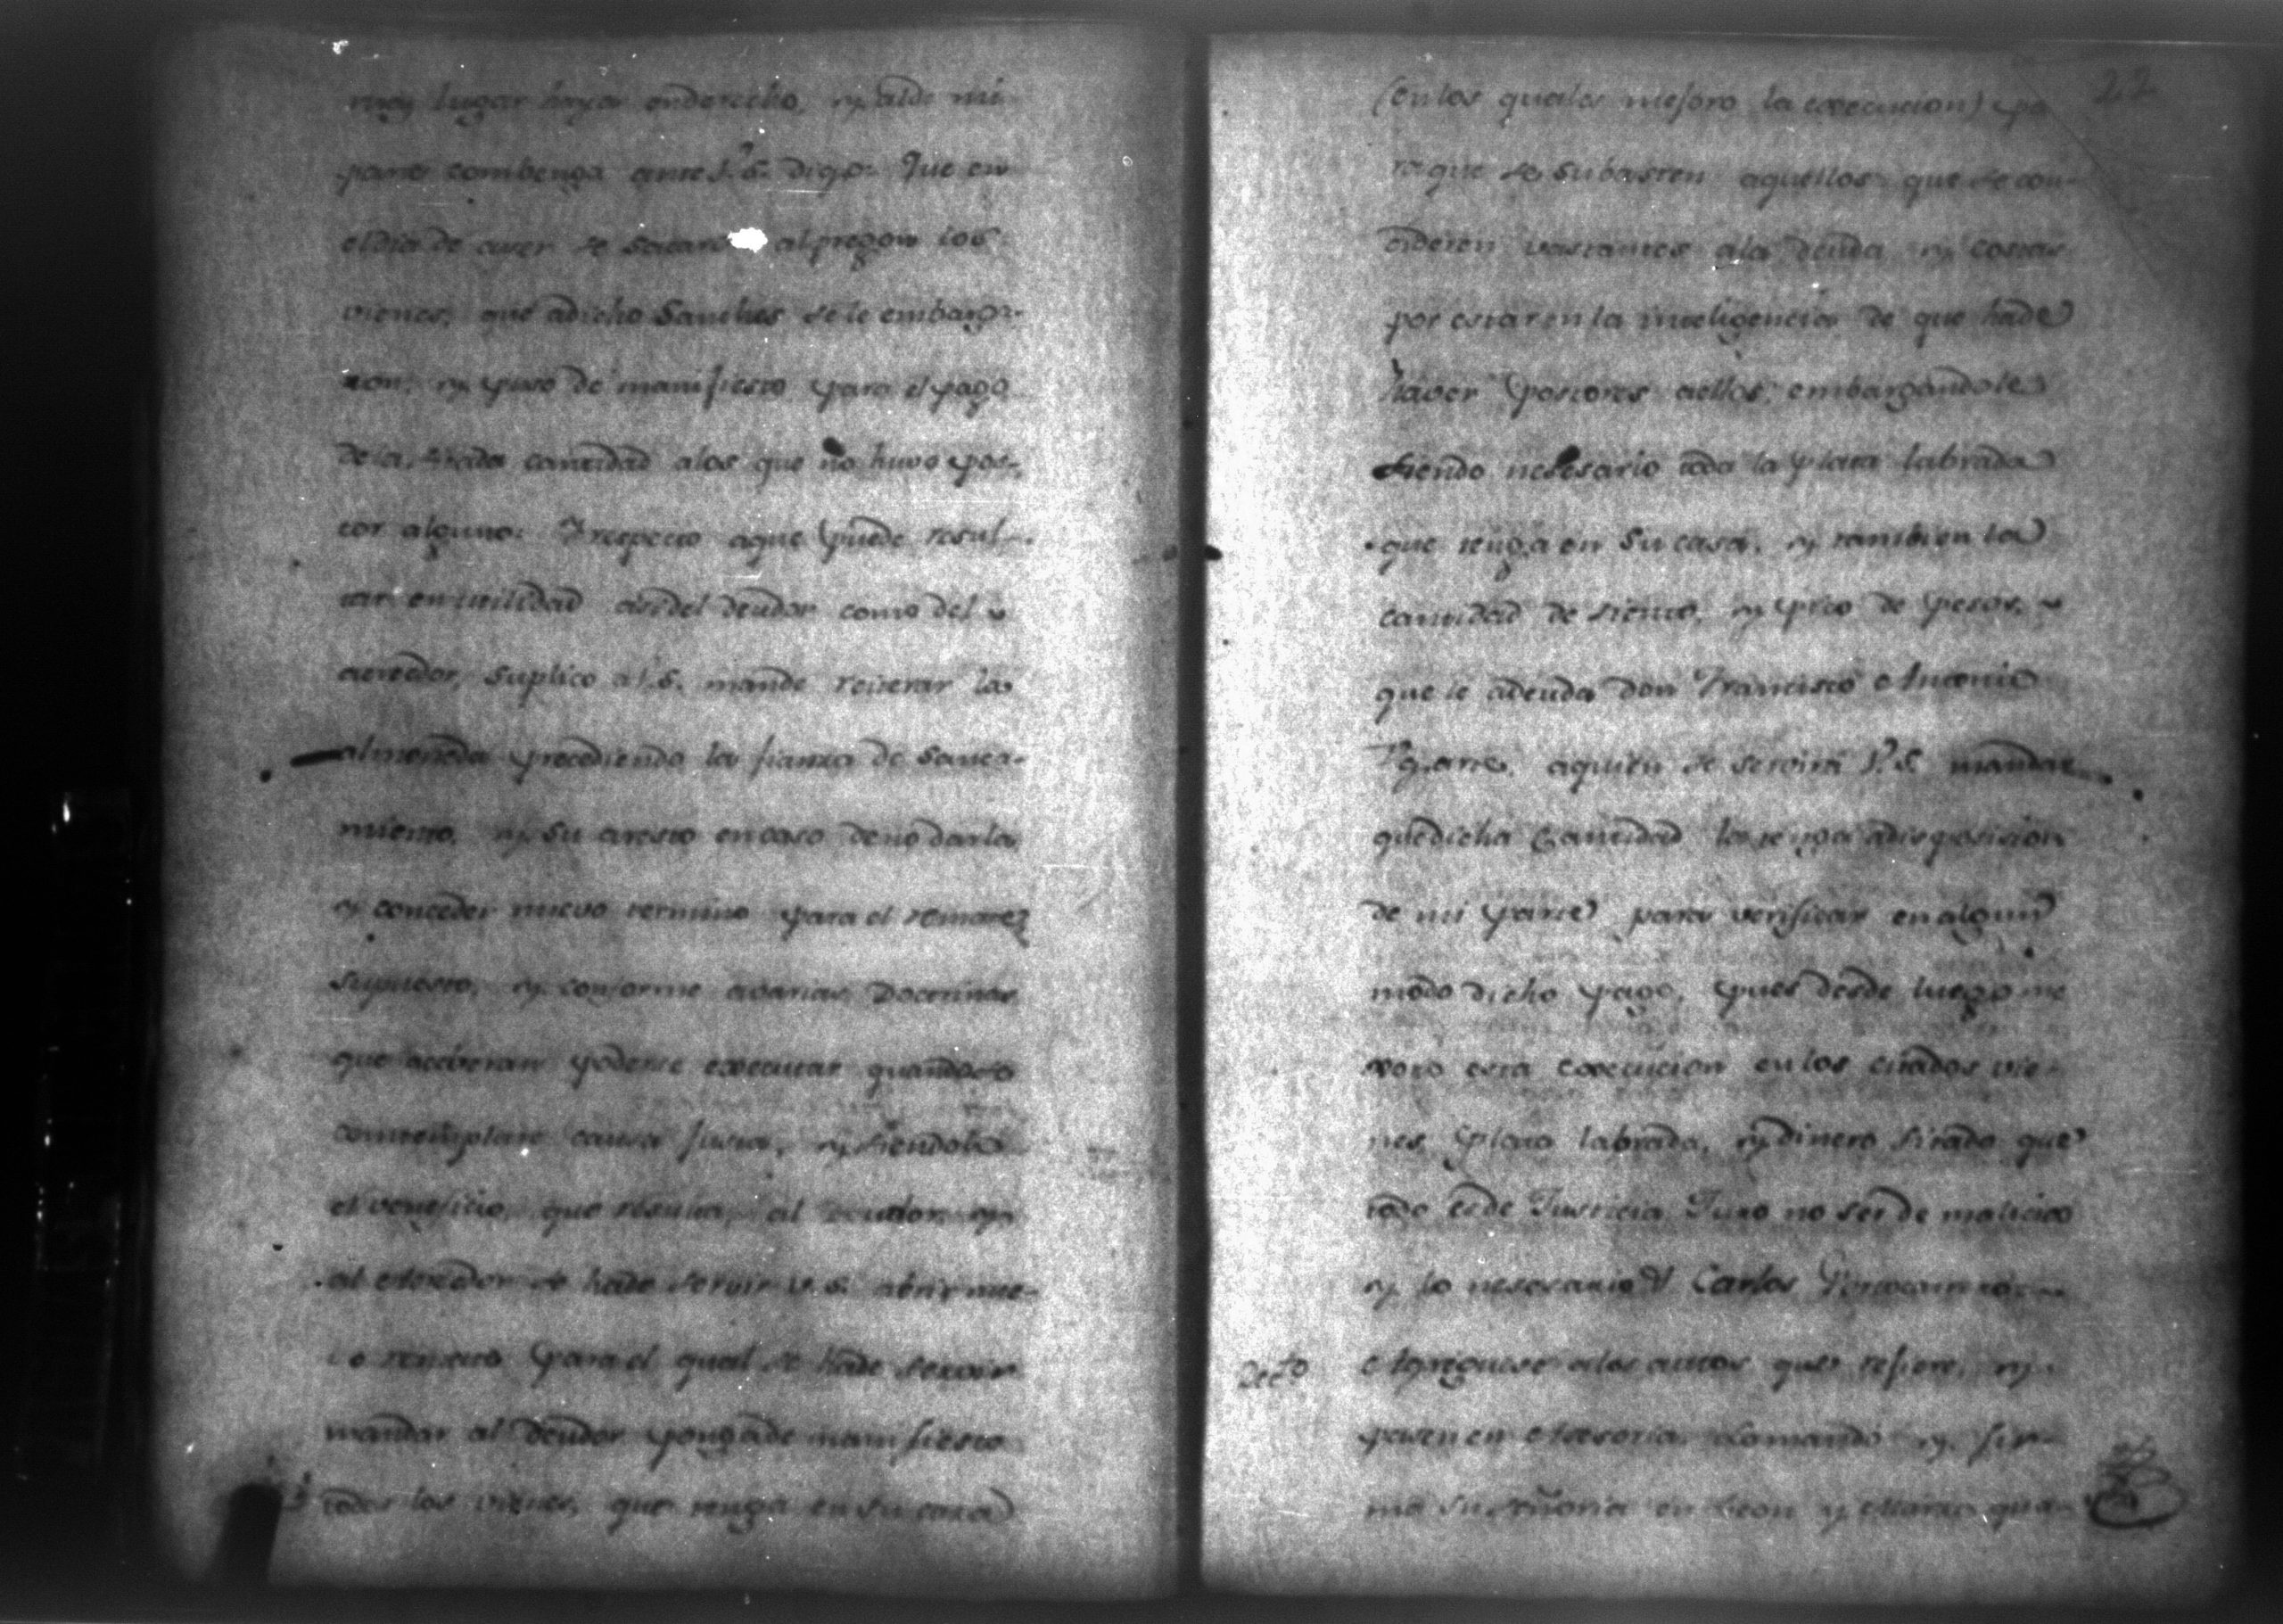 mas lugar haya enderecho, y alde mi
parte combenga ante V.S. Digo: Que en
eldia de ayer se sacaron al pregon los
vienes, que adicho Sanches se le embarga-
ron, y puso de manifiesto para el pago
dela citada cantidad alos que no huvo pos-
tor alguno: Y respecto aque puede resul-
tar en utilidad asi del deudor como del
acreedor, suplico a V.S. mande reiterar la
almoneda precediendo la fianza de sanea-
miento, y su aresto encaso deno darla
y conceder nuevo termino para el remate
supuesto, y conforme avarias Doctrinas
que poderse executar quando
causa justa, y siendolo
el veneficio, que resulta, al Deudor y
al Acreedor se hade servir V.S. abrir nue-
vo termino para el qual se hade servir
mandar al deudor ponga de manifiesto
todos los vienes, que tenga en su casa
22
(en los quales mejoro la execucion) pa
ra que se subasten aquellos que se con-
cideren vastantes ala deuda y costas
por estar en la inteligencia de que hade
haver postores aellos; embargandole
siendo nesesario toda la plata labrada
que tenga en su casa, y tambien la
cantidad de siento, y pico de pesos,
que le adeuda Don Francisco Antonio
aquien se servirá V.S. mandar
quedicha Cantidad la tenga adisposicion
de mi parte para verificar en algun
modo dicho pago, pues desde luego me
xoro esta execucion en los citados vie-
nes, plata labrada, y dinero sitado que
todo es de Justicia Juro no ser de malicia
y lo nesesario Carlos Portocarrero
Dec.to Agreguese alos autos que refiere, y
pasen en Asesoria. Lo mandó y fir-
mó su señoria en Leon y Marzo qua-